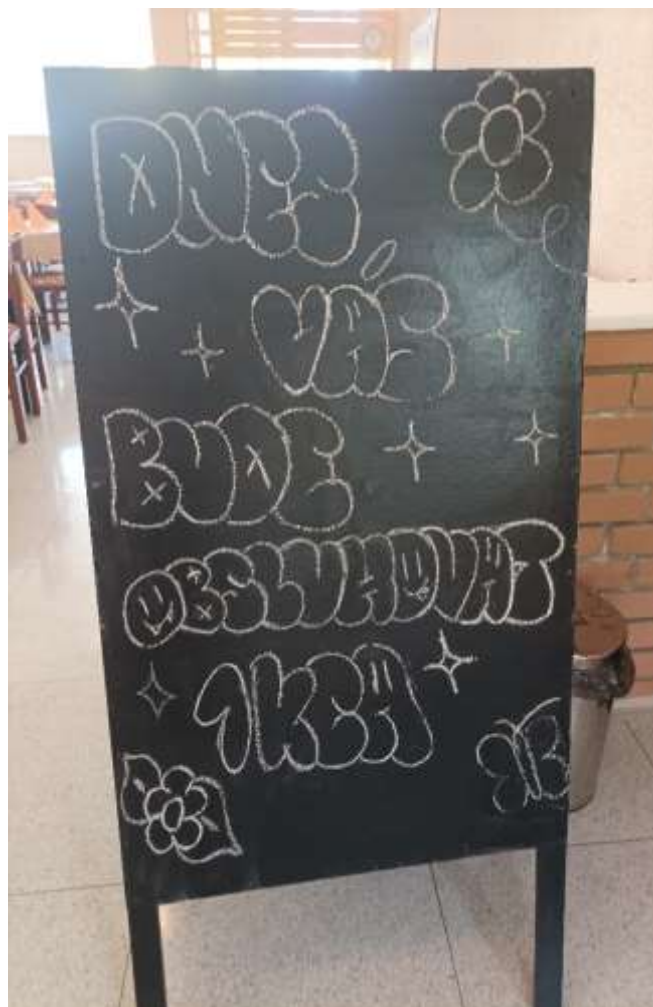 DNES
VÁS
BUDE
OBSLUHOVAT
1KCA